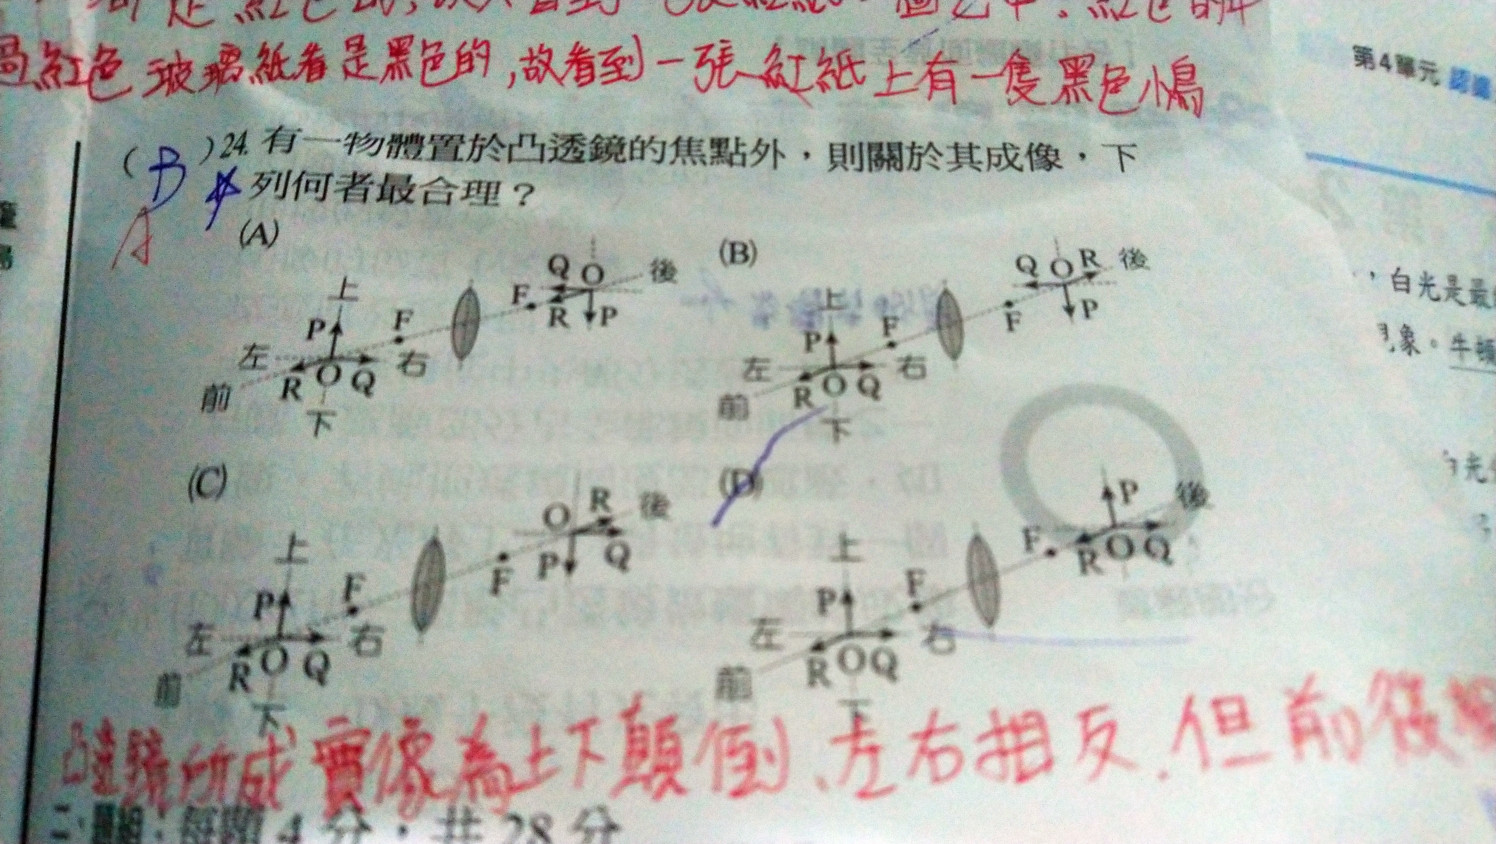 過紅色玻璃紙看是黑色的,故看到一張紅紙上有一隻黑色小鳥
第4單元
( B A )24. 有一物體置於凸透鏡的焦點外，則關於其成像，下
列何者最合理？
(A)
上 P F 左 右 R O Q 前 下 F Q O R P 後
(B)
上 P F 左 右 R O Q 前 下 F Q O R P 後
(C)
上 P F 左 右 R O Q 前 下 F O R P Q 後
(D)
上 P F 左 右 R O Q 前 下 F P R O Q 後
凸透鏡所成實像為上下顛倒、左右相反,但前後
二、題組：每題 4 分，共 28 分
，白光是最
現象。牛頓
白光